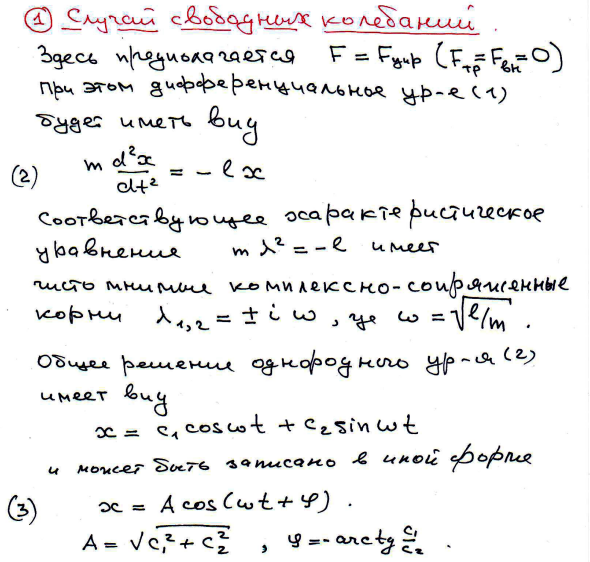 ① Случай свободных колебаний.
Здесь предполагается F = Fупр (Fтр = Fвн = 0)
При этом дифференциальное ур-е (1)
будет иметь вид
(2) m d²x/dt² = - l x
Соответствующее характеристическое
уравнение m λ² = - l имеет
чисто мнимые комплексно-сопряженные
корни λ₁,₂ = ± i ω, где ω = √(l/m).
Общее решение однородного ур-я (2)
имеет вид
x = c₁ cos ωt + c₂ sin ωt
и может быть записано в иной форме
(3) x = A cos(ωt + φ).
A = √(c₁² + c₂²), φ = - arctg c₁/c₂.